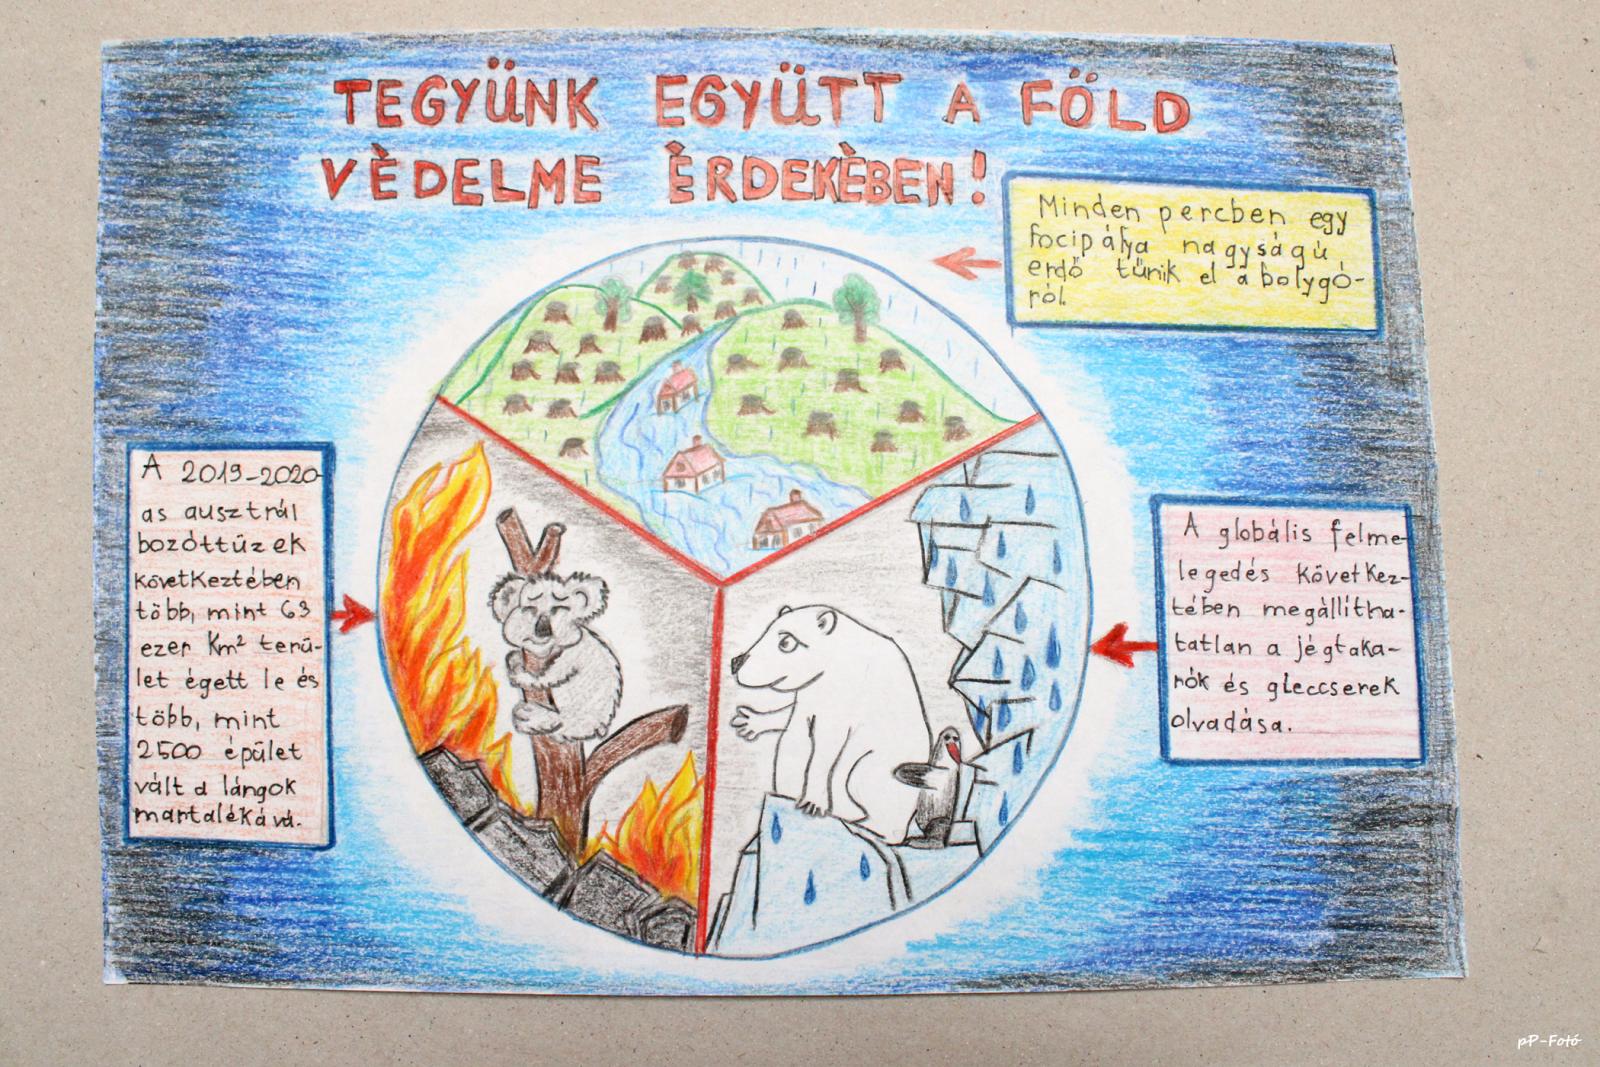 TEGYÜNK EGYÜTT A FÖLD
VÈDELME ÈRDEKÈBEN!
Minden percben egy
focipálya nagyságú
erdő tűnik el a bolygó-
ról.
A 2019-2020-
as ausztrál
bozóttűzek
következtében
több, mint 63
ezer Km² terü-
let égett le és
több, mint
2500 épület
vált a lángok
martalékává.
A globális felme-
legedés következ-
tében megállítha-
tatlan a jégtaka-
rók és gleccserek
olvadása.
pP-Fotó